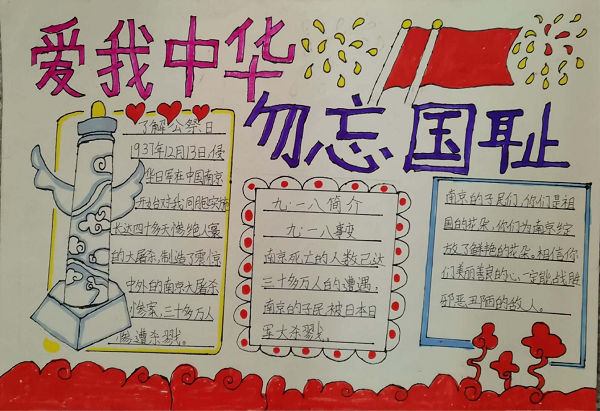 爱我中华
勿忘国耻
了解公祭日
1937年12月13日,侵
华日军在中国南京
开始对我同胞实施
长达四十多天惨绝人寰
的大屠杀,制造了震惊
中外的南京大屠杀
惨案,三十多万人
惨遭杀戮。
九·一八简介
九·一八事变
南京死亡的人数已达
三十多万人的遭遇,
南京的子民被日本日
军大杀戮。
南京的子民们,你们是祖
国的花朵,你们为南京绽
放了鲜艳的花朵。相信你
们美丽善良的心,一定能战胜
邪恶丑陋的敌人。